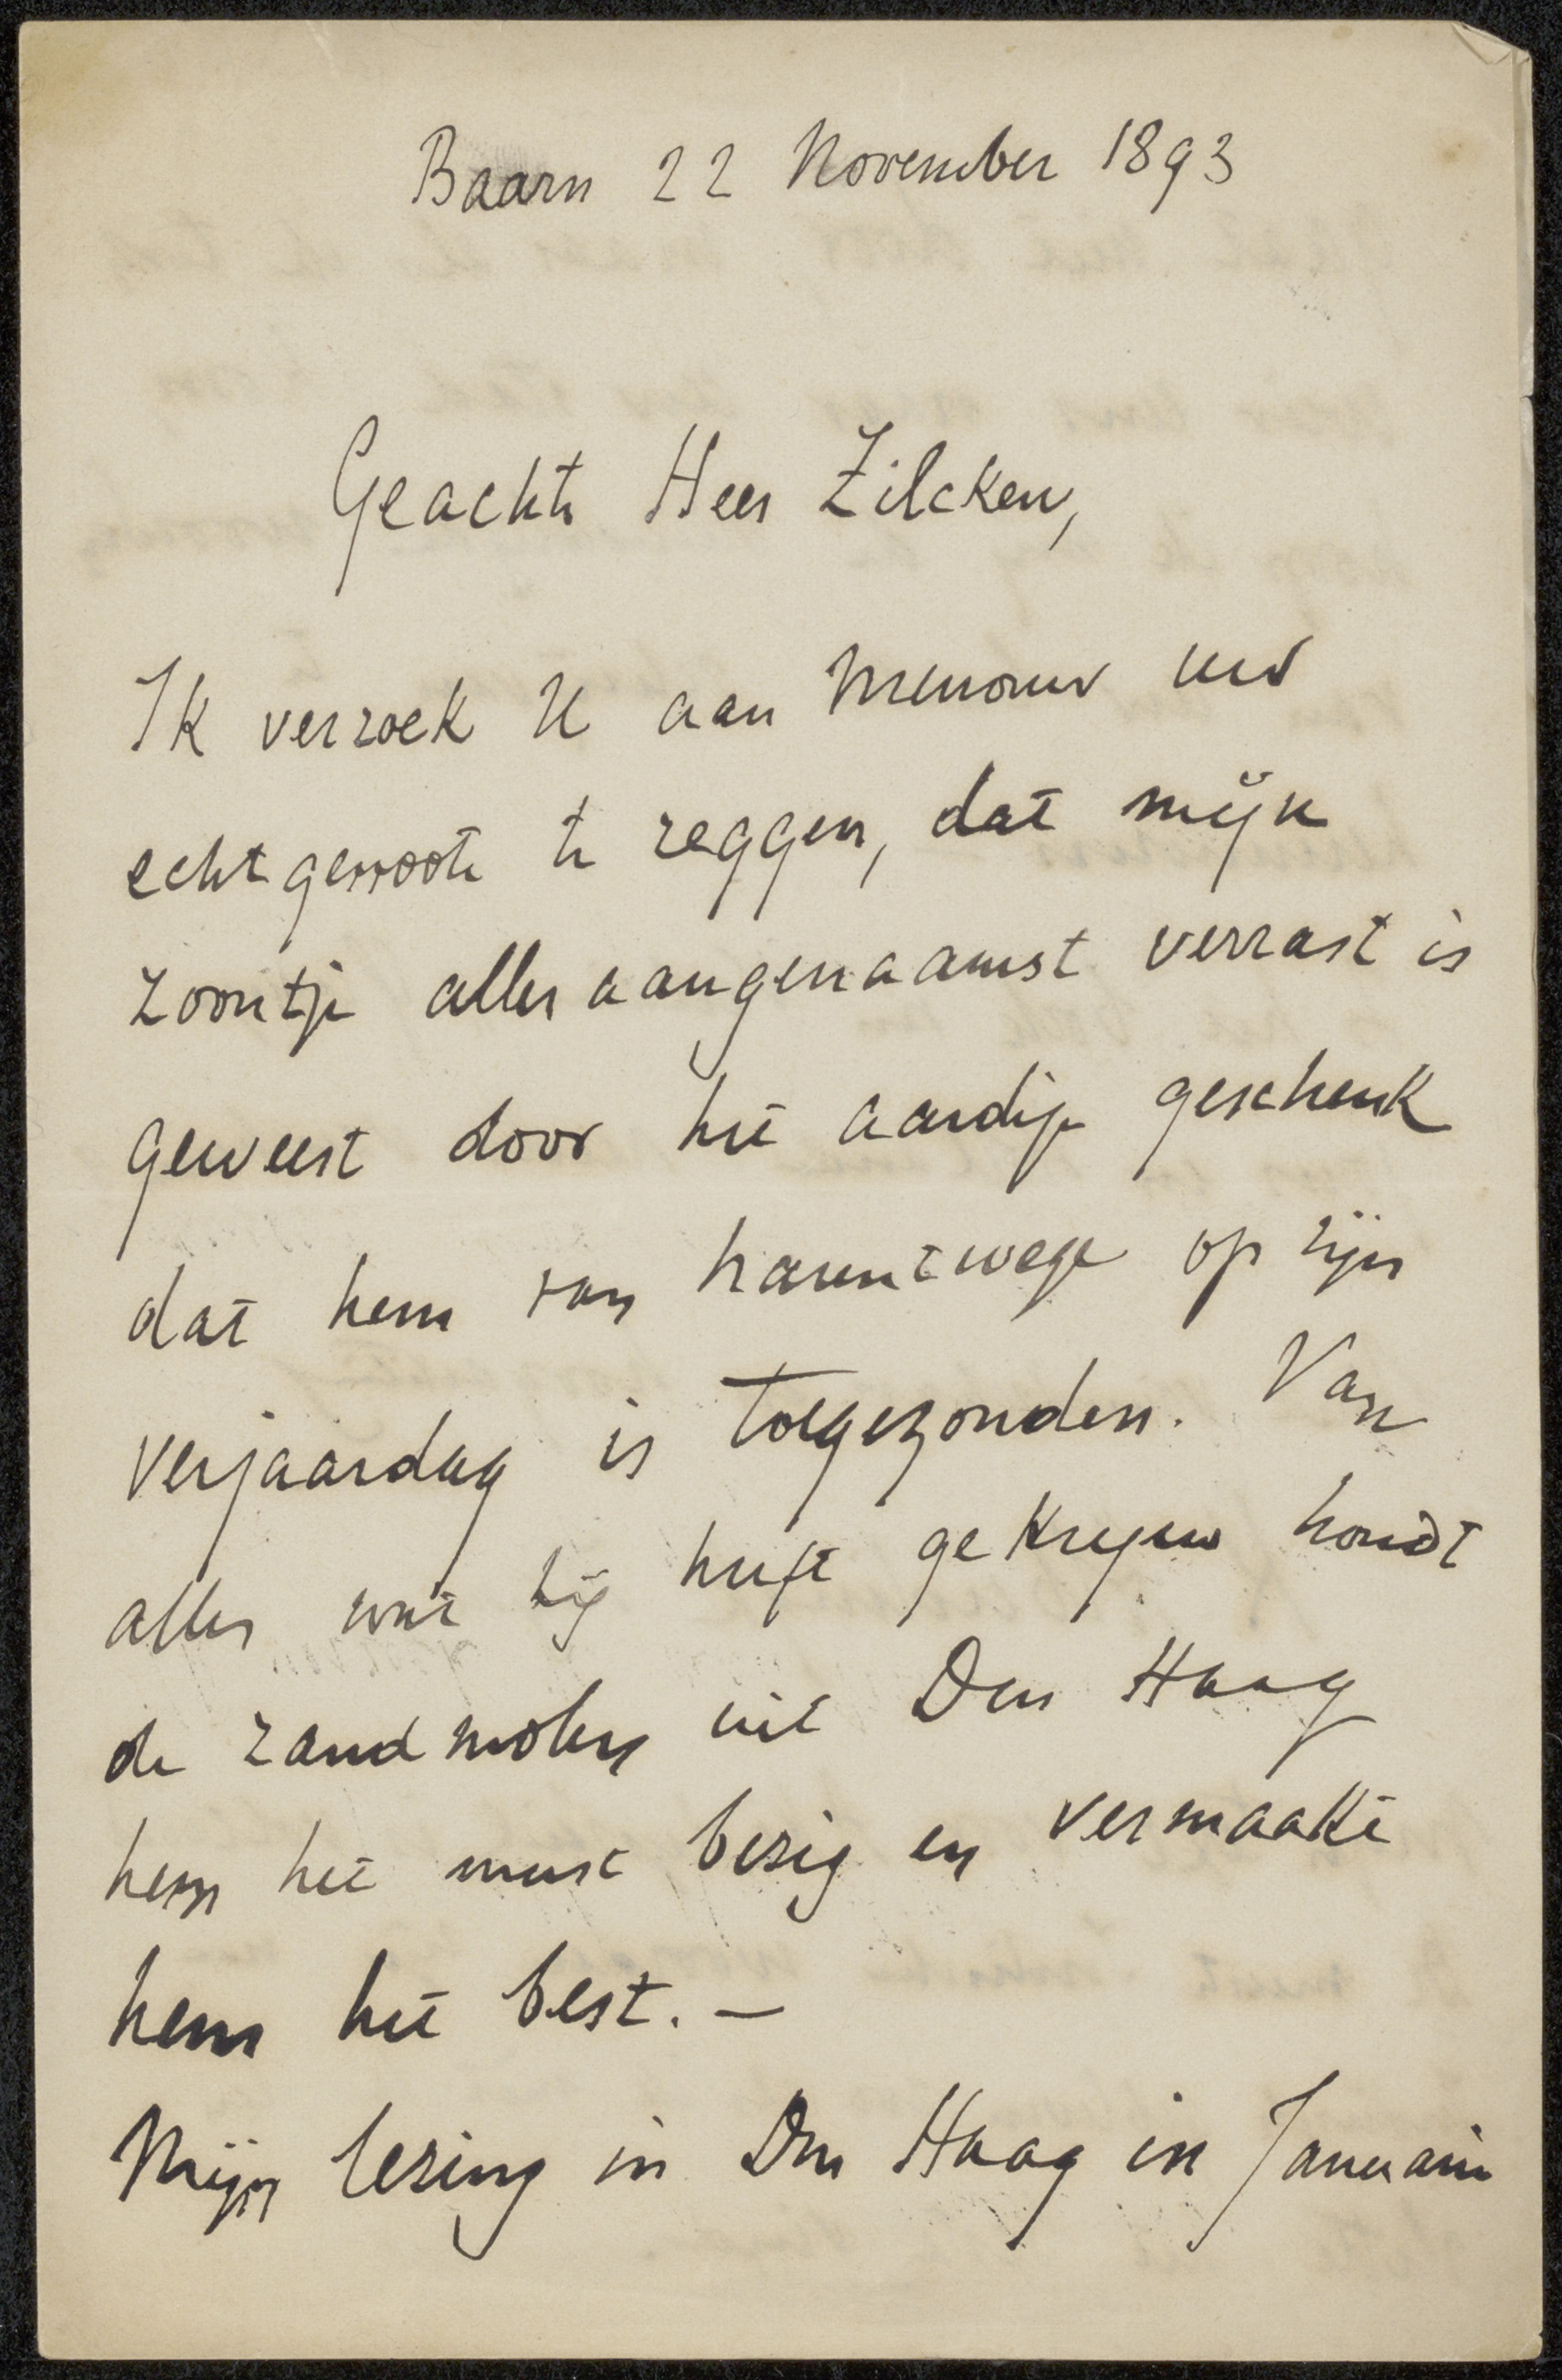 Baarn 22 November 1893
Geachte Heer Zilcken,
Ik verzoek U aan Mevrouw uw
echtgenoote te zeggen, dat mijn
zoontje alleraangenaamst verrast is
geweest door het aardige geschenk
dat hem van harentwege op zijn
verjaardag is toegezonden. Van
alles wat hij heeft gekregen houdt
de zandmolen uit Den Haag
hem het meest bezig en vermaakt
hem het best. —
Mijn lezing in Den Haag in Januari